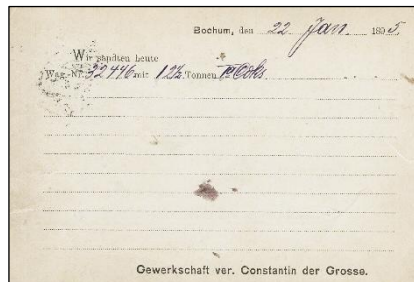 Bochum, den 22 Jan. 1895.
Wir sandten heute
Wag.-Nr. 32446 mit 12½ Tonnen Coks
Gewerkschaft ver. Constantin der Grosse.